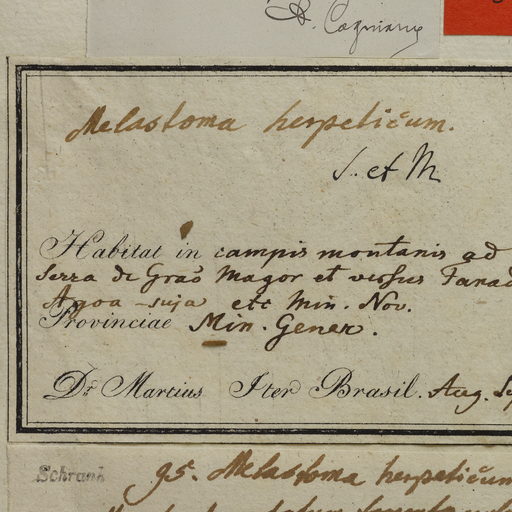 R. Cogniaux
Melastoma herpeticum.
S. et M
Habitat in campis montanis ad
Serra de Graõ Magor et versus Tanad
Agoa-suja etc Min. Nov.
Provinciae Min. Gener.
Dr. Martius Iter Brasil. Aug. Se
Schrank
95. Melastoma herpeticum